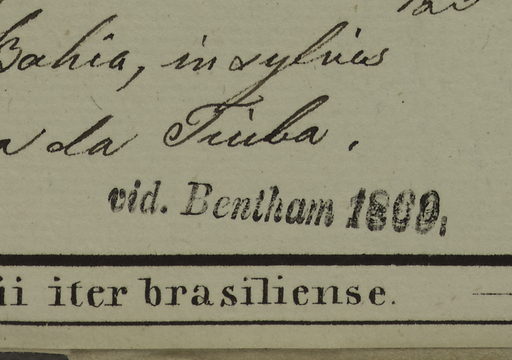 Bahia, in sylvis
a da Tiuba.
vid. Bentham 1869.
ii iter brasiliense.